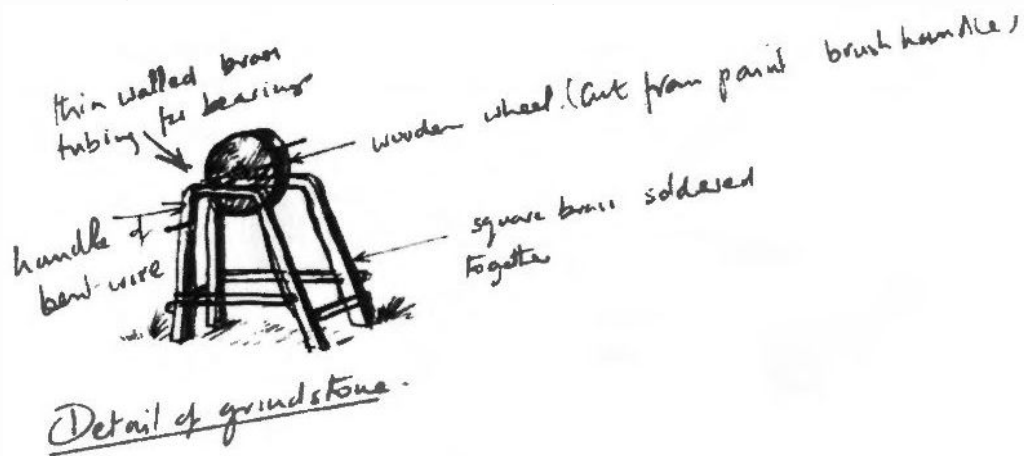 thin walled brass
tubing for bearings
wooden wheel. (Cut from paint brush handle)
handle of
bent wire
square brass soldered
together
Detail of grindstone.